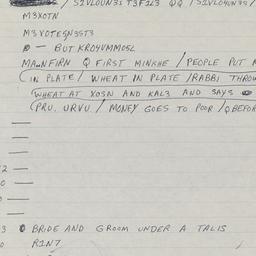 / S2VLOUN3S T3F2L3 QQ / S2VLOUN3S /
M3XOTN
M3XOTESN3ST3
— BUT KRO4VMMOSL
MAWNFIRN Q FIRST MINKHE / PEOPLE PUT
(IN PLATE / WHEAT IN PLATE / RABBI THROW
WHEAT AT XOSN AND KAL3 AND SAYS
(PRU. URVU. / MONEY GOES TO POOR / Q BEFOR
2 —
0 —
3 BRIDE AND GROOM UNDER A TALIS
0 R2N7